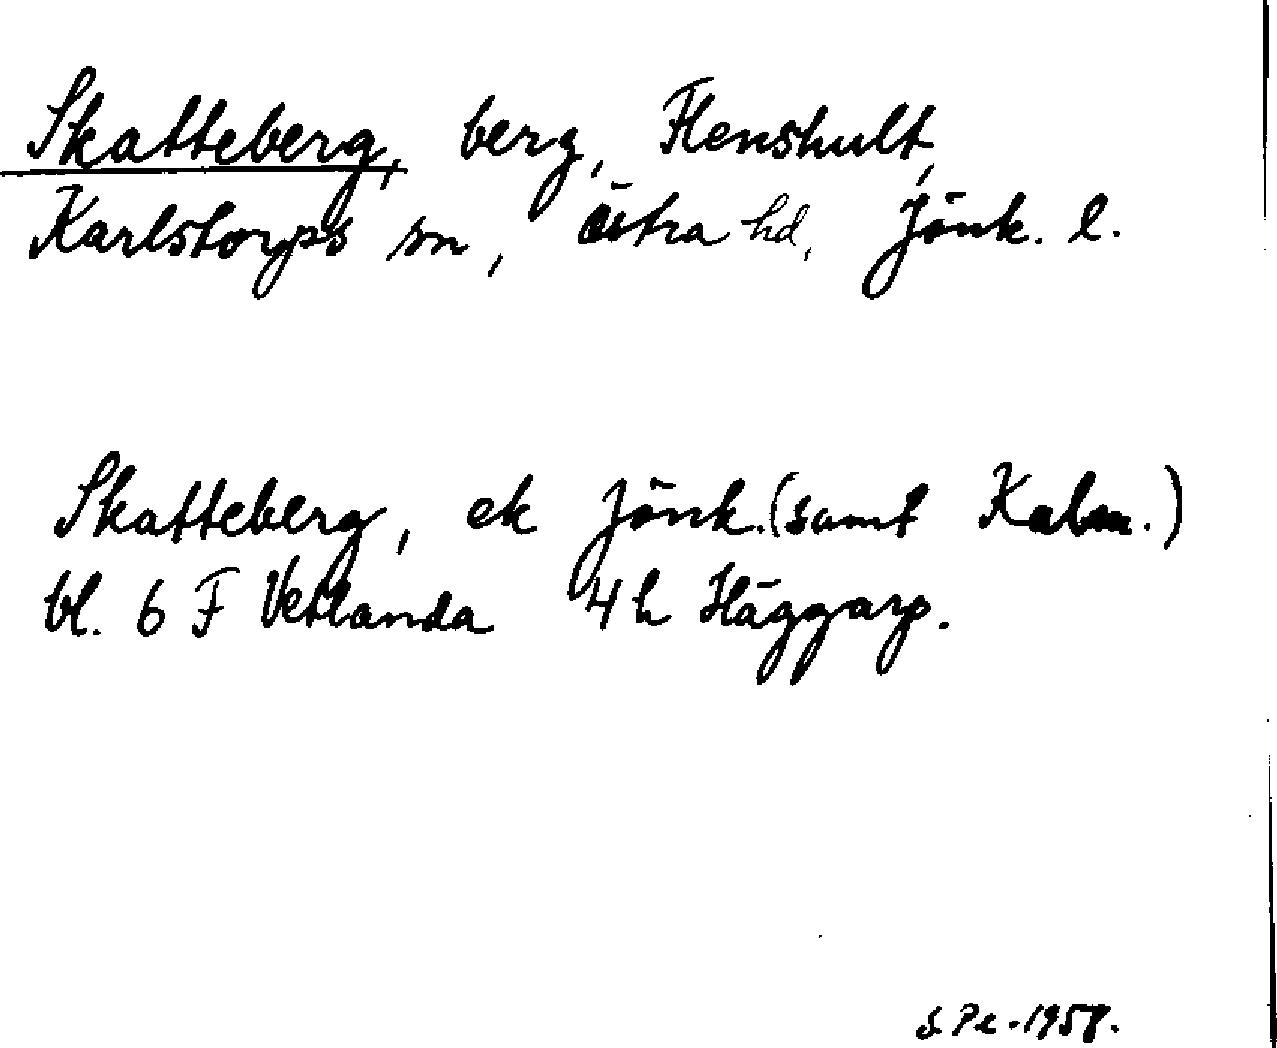 Skatteberg, berg, Flenshult,
Karlstorps sn, östra hd, Jönk. l.
Skatteberg, ek Jönk. (samt Kalm.)
bl. 6 F Vetlanda 4h Häggarp.
S. Pe. 1958.